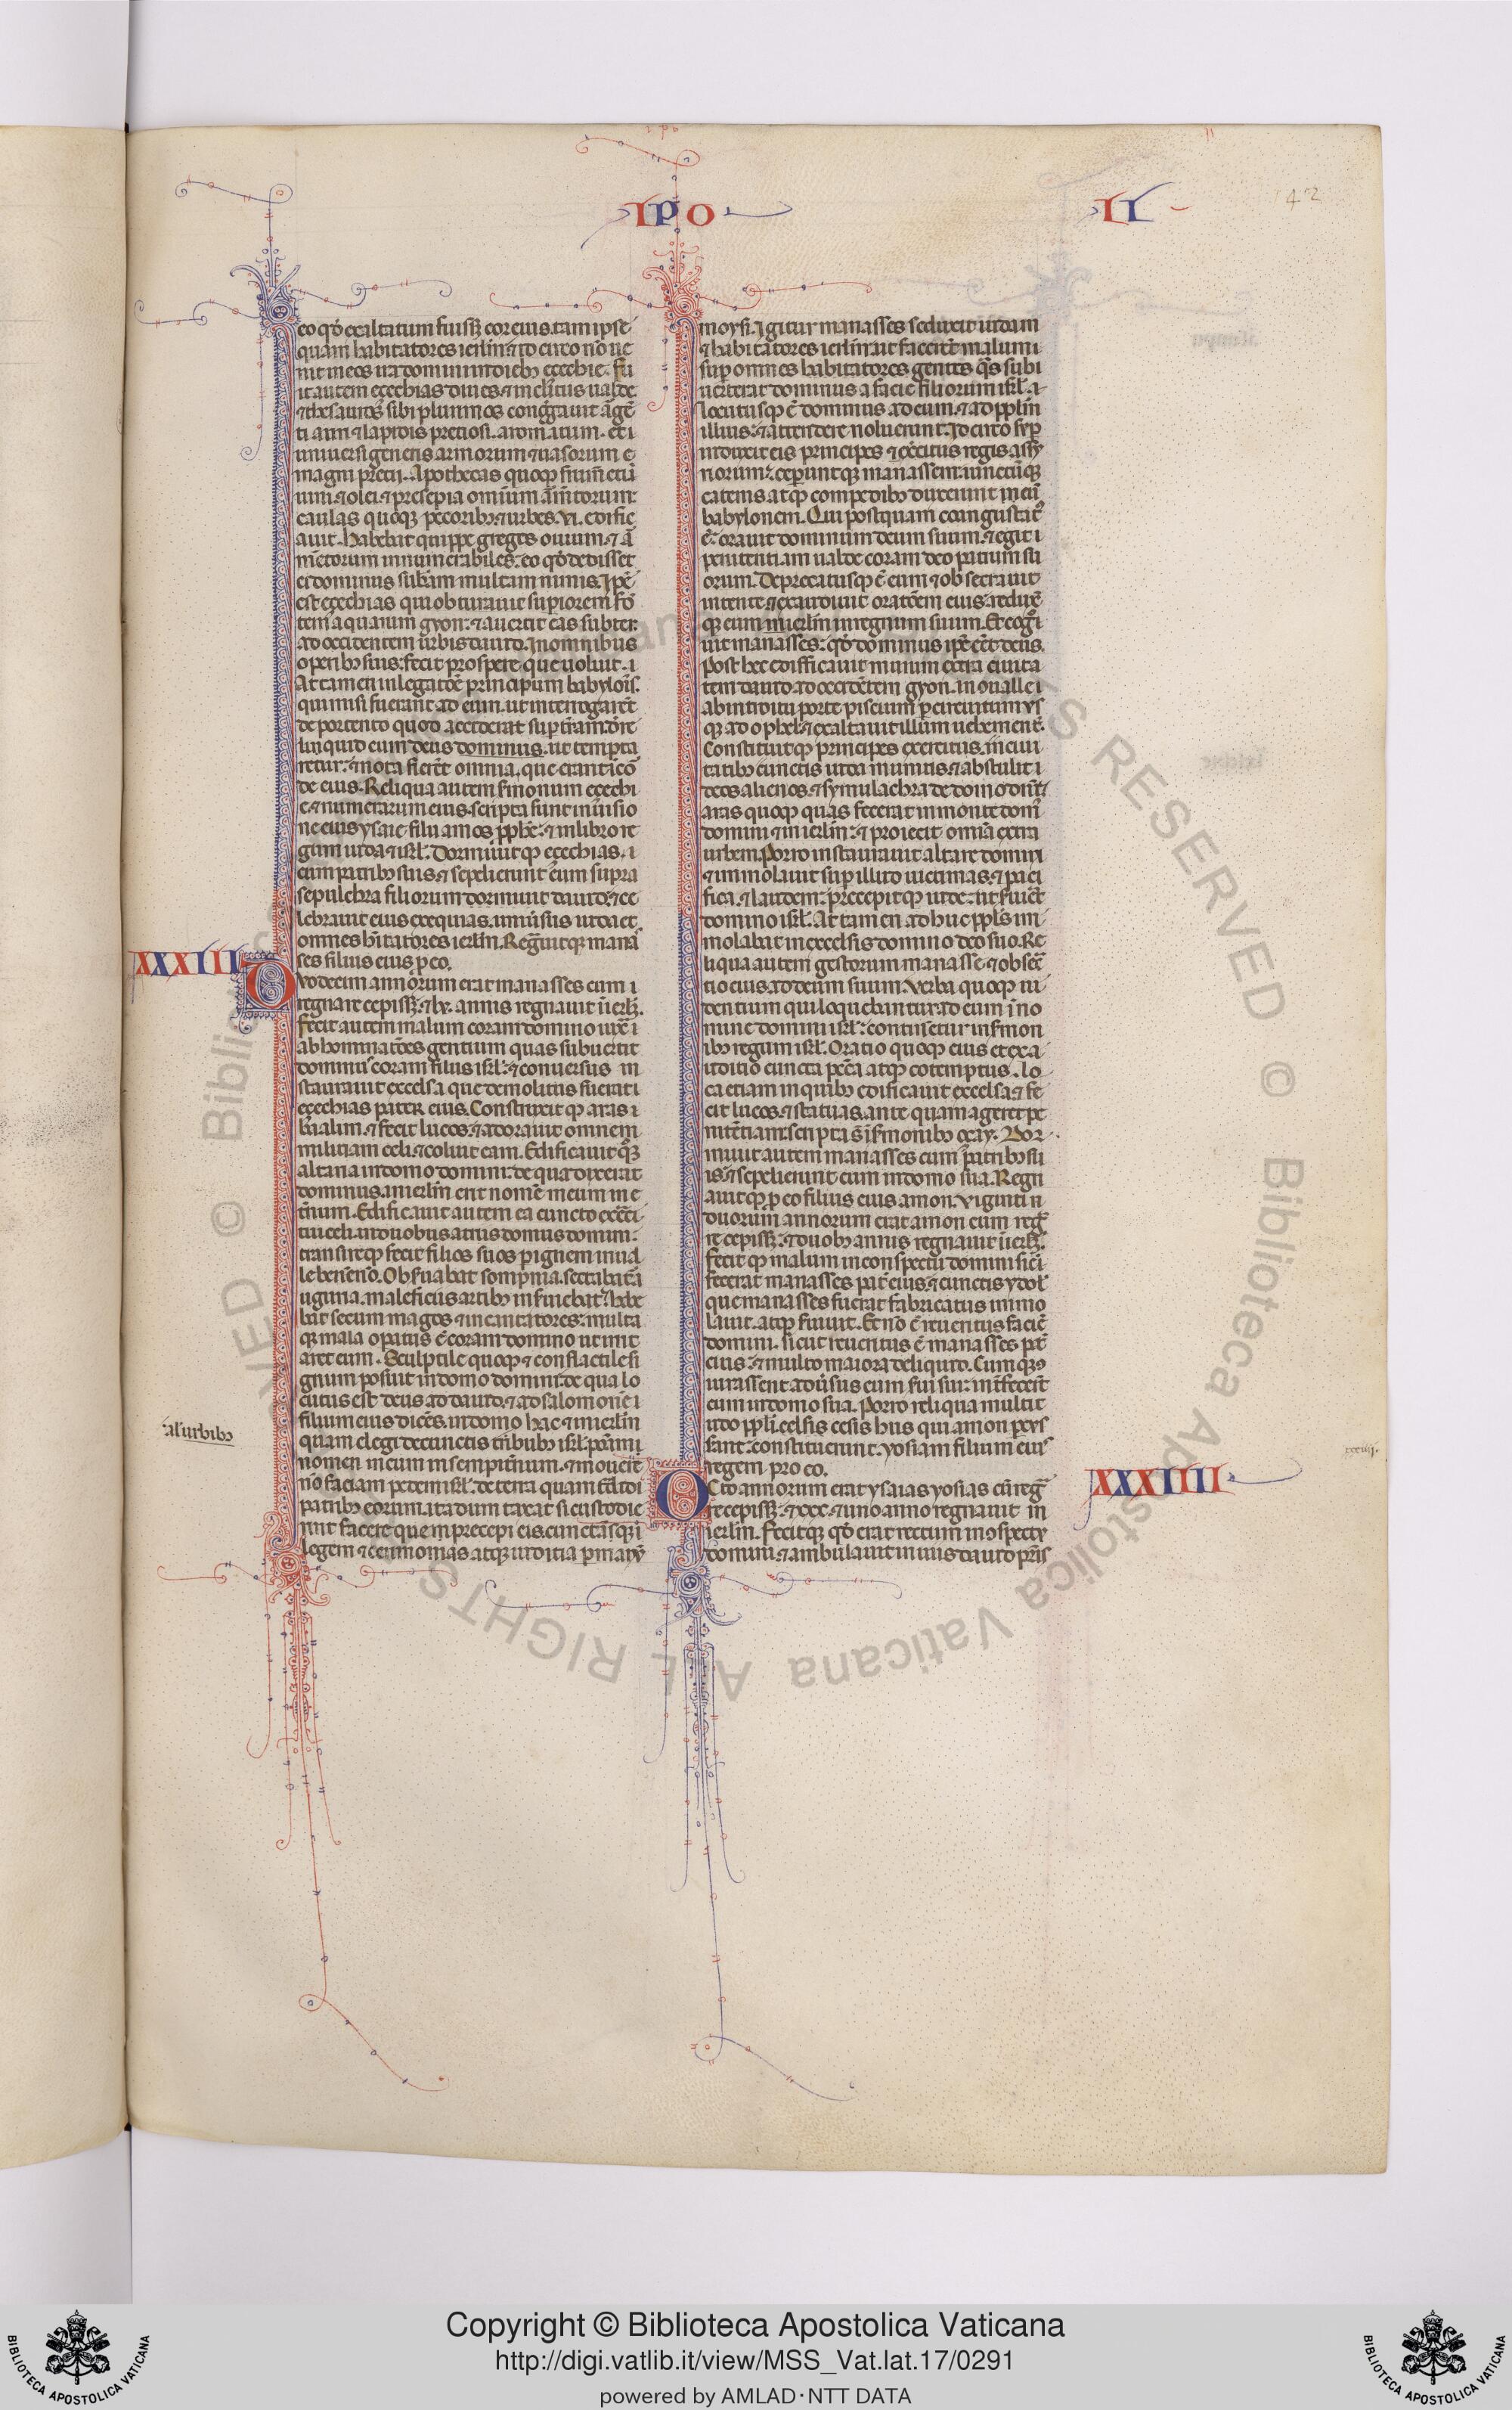 IPO
II
42
eo qđ exaltatum fuiss; cor eius. tam ipse
quam habitatores ierlm̄. ⁊ id circo nō ue
nit in eos ira domini in dieb; ezechie. Fu
it autem ezechias diues. ⁊ inclitus ualde
⁊ thesauros sibi plurimos congregauit argē
ti auri ⁊ lapidis preciosi. aromatum. et
uniuersi generis armorum ⁊ uasorum
magni precii. Apothecas quoq; frumenti
uini. ⁊ olei. ⁊ presepia omnium iumentorum.
caulas quoq; pecorib;. ⁊ urbes. vi. edific
auit. Habebat quippe greges ouium. ⁊ ar
mētorum innumerabiles. eo qđ dedisset
ei dominus substantiam multam nimis. Ipse
est ezechias qui obturauit superiorem fon
tem aquarum gyon. ⁊ auertit eas subter.
ad occidentem urbis dauid. In omnibus
operib; suis. fecit prospere que uoluit.
At tamen in legatōe principum babylonis.
qui missi fuerant ad eum. ut interrogarēt
de portento quod acciderat super terram. dere
liquid eum deus dominus. ut tempta
retur. ⁊ nota fierēt omnia. que erant ī cor
de eius. Reliqua autem sermonum ezechi
e. ⁊ miserarum eius. scripta sunt in uisio
ne eius ysaie filii amos prophete. ⁊ in libro re
gum iuda ⁊ isrl. Dormiuit q; ezechias.
cum patrib; suis. ⁊ sepelierunt eum supra
sepulchra filiorum dauid. ⁊ ce
lebrauit eius exequias. uniuersus iuda et
omnes habitatores ierlm̄. Regnauit q; manas
ses filius eius pro eo.
XXXIII
Duodecim annorum erat manasses cum
regnare cepiss;. ⁊ lv. annis regnauit in ierlm.
fecit autem malum coram domino iuxta
abhominatōes gentium quas subuertit
dominus coram filiis isrl. ⁊ conuersus in
staurauit excelsa que demolitus fuerat
ezechias pater eius. Construxit q; aras
baalim. ⁊ fecit lucos. ⁊ adorauit omnem
militiam celi. ⁊ coluit eam. Edificauit quoq;
altaria in domo domini. de qua dixerat
dominus. in ierlm̄ erit nomē meum in e
ternum. Edificauit autem ea cuncto exerci
tui celi. in duobus atriis domus domini.
transireq; fecit filios suos per ignem in ual
le benennon. Obseruabat sompnia. sectabatur
auguria. maleficiis artib; inseruiebat. habe
bat secum magos. ⁊ incantatores. multa
q; mala operatus ē coram domino ut irrit
aret eum. Sculptile quoq; ⁊ conflatile si
gnum posuit in domo domini. de qua lo
cutus est deus ad dauid. ⁊ ad salomonem
filium eius dicēs. in domo hac ⁊ in ierlm̄
al' urbib;
quam elegi de cunctis tribub; isrl. ponam
nomen meum in sempiternum. ⁊ moueri
nō faciam pedem isrl. de terra quam tradidi
patrib; eorum. ita dum taxat si custodie
rint facere que precepi eis. cunctamq;
legem ⁊ cerimonias atq; iudicia per manum
moysi. Igitur manasses seduxit iudam
⁊ habitatores ierlm̄. ut facerēt malum
super omnes habitatores gentes quas sub
uerterat dominus a facie filiorum isrl.
locutusq; ē dominus ad eum. ⁊ ad pplm̄
illius. ⁊ attendere noluerunt. Id circo super
induxit eis principes ⁊ exercitus regis assy
riorum. ceperuntq; manassem. uinctumq;
catenis atq; compedib; duxerunt in
babylonem. Qui postquam coangustatus
ē. orauit dominum deum suum. ⁊ egit
penitentiam ualde coram deo patrum su
orum. Deprecatusq; ē eum ⁊ obsecrauit
intente. ⁊ exaudiuit oratōem eius. reduxit
q; eum in ierlm̄ in regnum suum. Et cogno
uit manasses. qđ dominus ipse esset deus.
Post hec edificauit murum extra ciuita
tem dauid. ad occidētem gyon. in conualle
ab introitu porte piscium per circuitum us
q; ad ophel. ⁊ exaltauit illum uehementer.
Constituitq; principes exercitus. in ciui
tatib; cunctis iuda munitis. ⁊ abstulit
deos alienos. ⁊ symulachra de domo domini.
aras quoq; quas fecerat in monte domus
domini ⁊ in ierlm̄. ⁊ proiecit omnia extra
urbem. Porro instaurauit altare domini
⁊ immolauit super illud uictimas. ⁊ paci
fica. ⁊ laudem. precepitq; iude. ut seruiret
domino isrl. At tamen ad huc ppls im
molabat in excelsis domino deo suo. Re
liqua autem gestorum manasse. ⁊ obsecra
tio eius. ad deum suum. Verba quoq; ui
dentium qui loquebantur ad eum in no
mine domini isrl. continetur in sermon
ib; regum isrl. Oratio quoq; eius et exa
uditio ⁊ cuncta peccata atq; cōtemptus. lo
ca etiam in quib; edificauit excelsa. ⁊ fe
cit lucos. ⁊ statuas. ante quam ageret pe
nitētiam. scripta sūt in sermonib; ozay. Dor
miuit autem manasses cum patrib; su
is. ⁊ sepelierunt eum in domo sua. Regn
auit q; pro eo filius eius amon. Viginti
duorum annorum erat amon cum regna
re cepiss;. ⁊ duob; annis regnauit in ierlm.
fecit q; malum in conspectu domini sicut
fecerat manasses pater eius. ⁊ cunctis ydolis
que manasses fuerat fabricatus immo
lauit. atq; seruiuit. Et nō ē reueritus faciem
domini. sicut reueritus ē manasses pater
eius. ⁊ multo maiora deliquid. Cum q;
iurassent aduersus eum serui sui. interfecerūt
eum in domo sua. Porro reliqua multit
udo ppli cesis hiis qui amon percus
serant. constituerunt. yosiam filium eius
regem pro eo.
xxxiiij.
XXXIIII
Octo annorum erat ysaias yosias cū regna
re cepiss;. ⁊ xxx. ⁊ uno anno regnauit in
ierlm̄. Fecitq; qđ erat rectum in cōspectu
domini. ⁊ ambulauit in uiis dauid patris
Copyright © Biblioteca Apostolica Vaticana
http://digi.vatlib.it/view/MSS_Vat.lat.17/0291
powered by AMLAD·NTT DATA
BIBLIOTECA APOSTOLICA VATICANA
BIBLIOTECA APOSTOLICA VATICANA